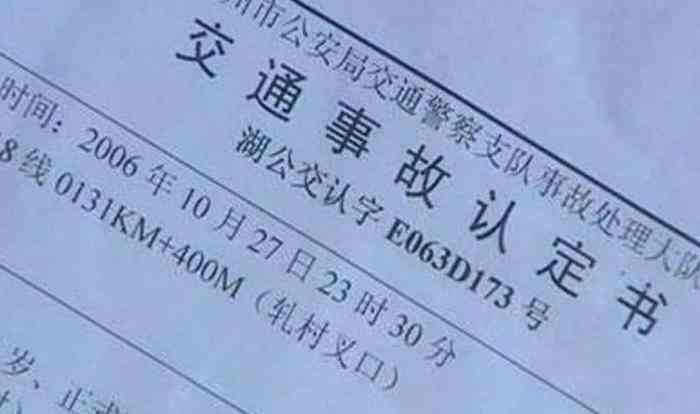 州市公安局交通警察支队事故处理大队
交通事故认定书
湖公交认字 E063D173 号
时间：2006 年 10 月 27 日 23 时 30 分
8 线 0131KM+400M（轧村叉口）
岁、正式